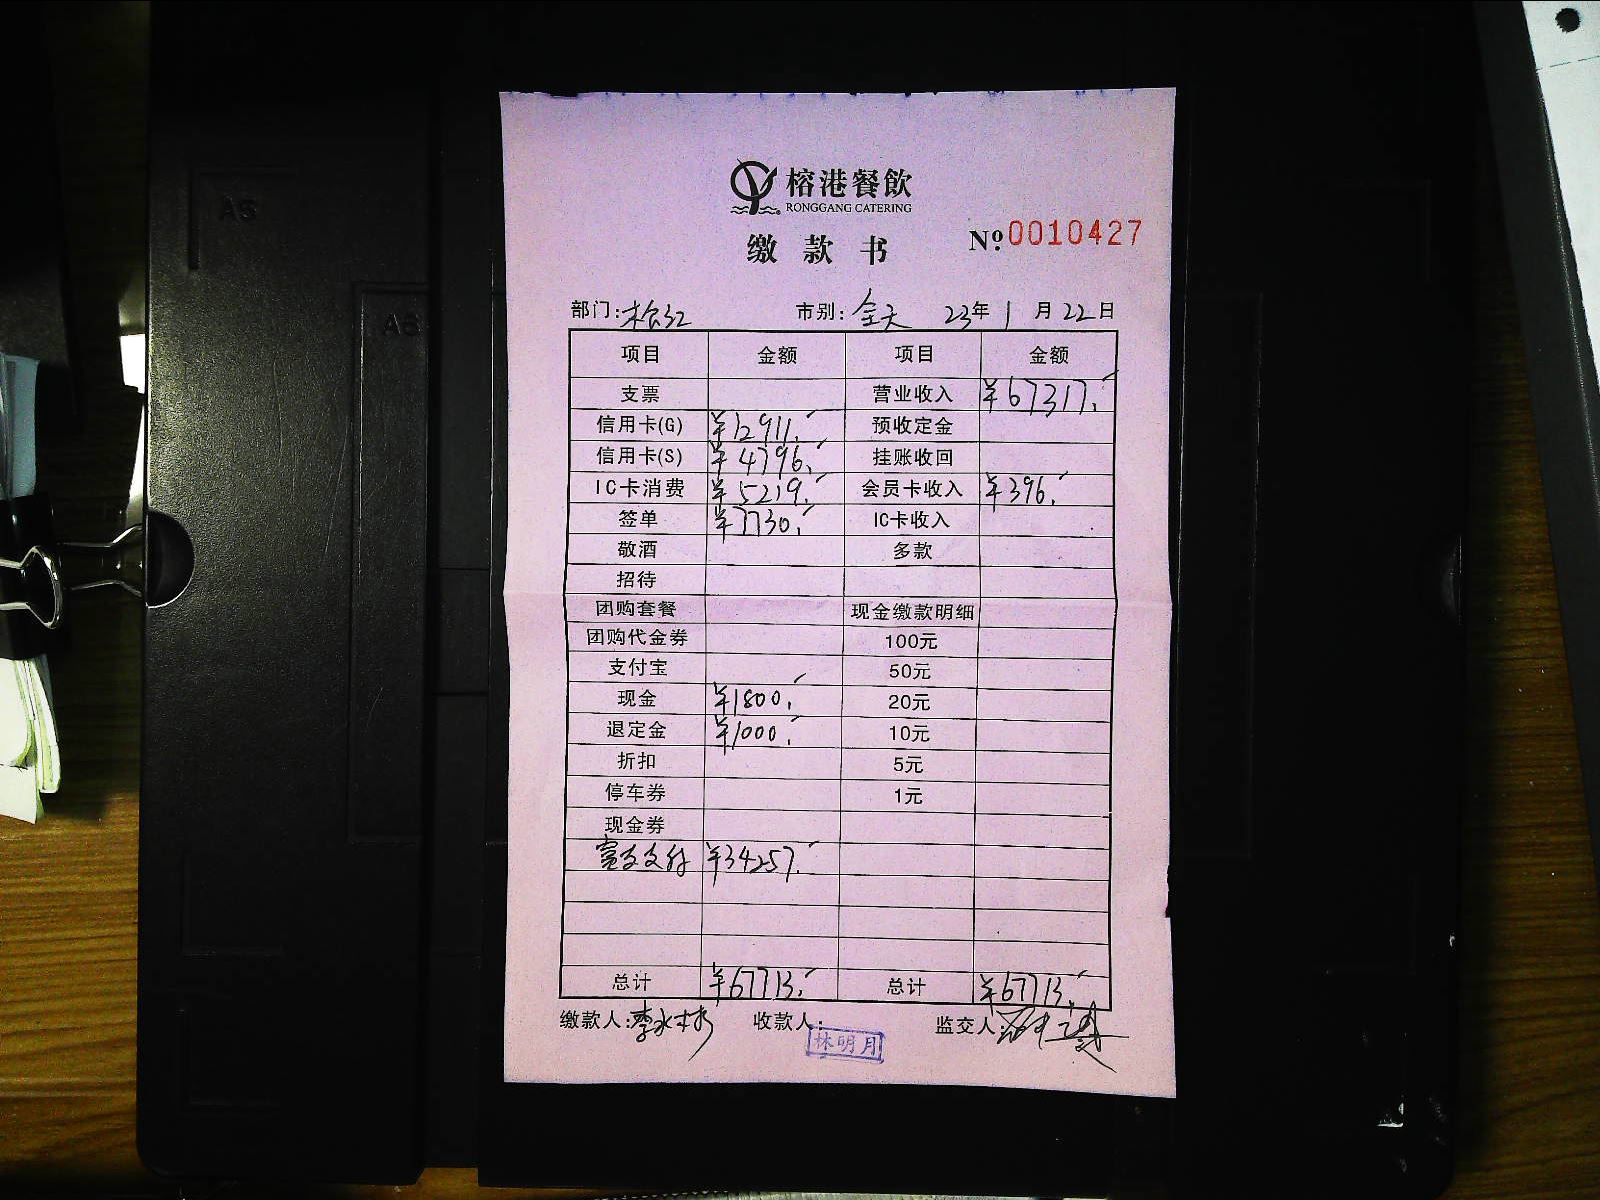 A6
A6
榕港餐飲
RONGGANG CATERING
缴款书 №0010427
部门: 市别:全天 23年1月22日
项目 金额 项目 金额
支票 营业收入 ¥67317.
信用卡(G) ¥12911. 预收定金
信用卡(S) ¥4796. 挂账收回
IC卡消费 ¥5219. 会员卡收入 ¥396.
签单 ¥7730. IC卡收入
敬酒 多款
招待
团购套餐 现金缴款明细
团购代金券 100元
支付宝 50元
现金 ¥1800. 20元
退定金 ¥1000. 10元
折扣 5元
停车券 1元
现金券
富友支付 ¥34257.
总计 ¥67713. 总计 ¥67713.
缴款人:李水彬 收款人: 监交人:
林明月